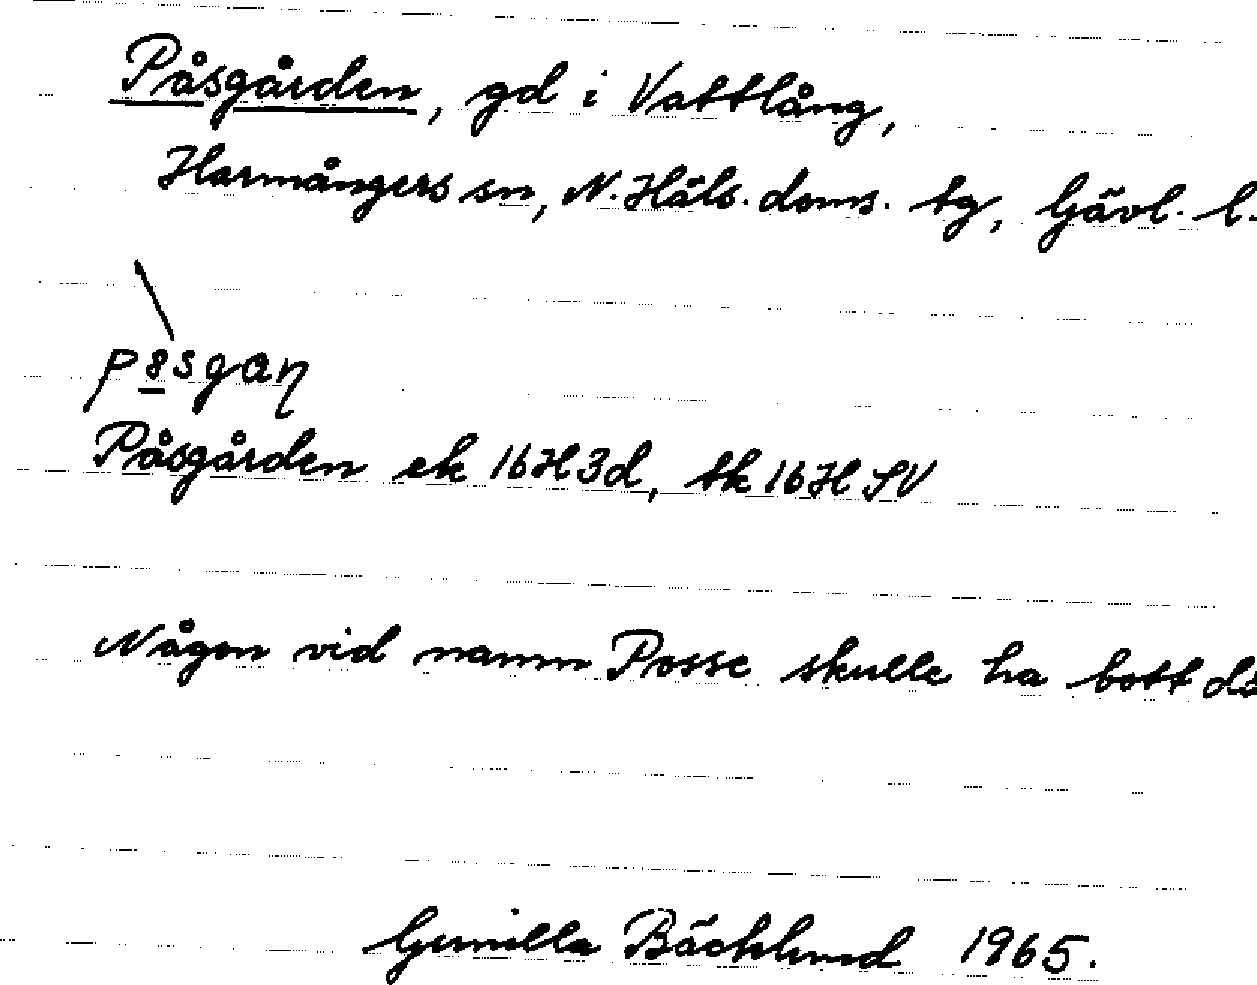 Påsgården, gd i Vattlång,
Harmångers sn, N. Häls. doms. tg, Gävl. l.
p8sgaη
Påsgården ek 16H3d, tk 16H SV
Någon vid namn Posse skulle ha bott dä
Gunilla Bäcklund 1965.